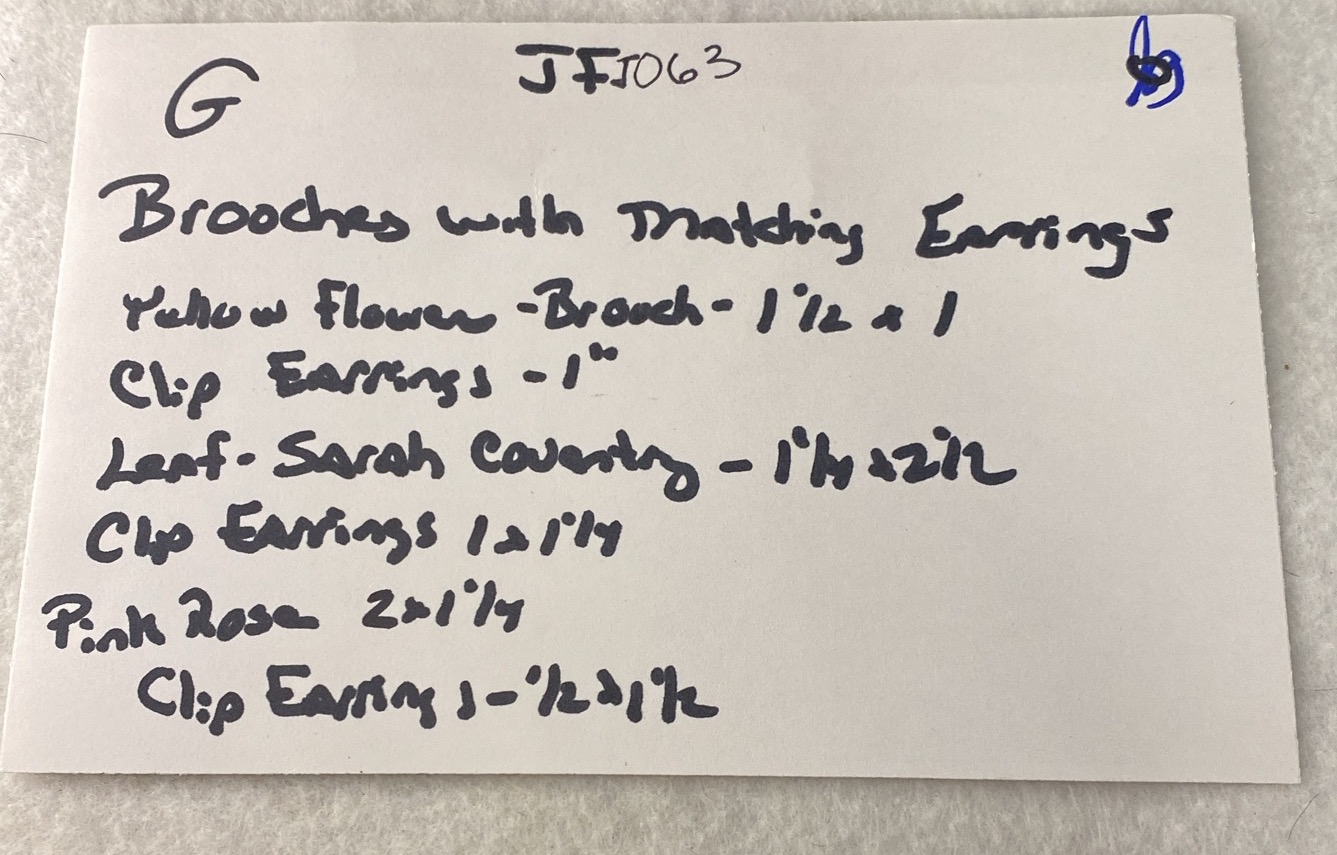 G JFJ063
Brooches with Matching Earrings
Yellow Flower - Brooch - 1 1/2 x 1
Clip Earrings - 1"
Leaf - Sarah Coventry - 1 1/4 x 2 1/2
Clip Earrings 1 x 1 1/4
Pink Rose 2 x 1 1/4
Clip Earrings - 1/2 x 1 1/2